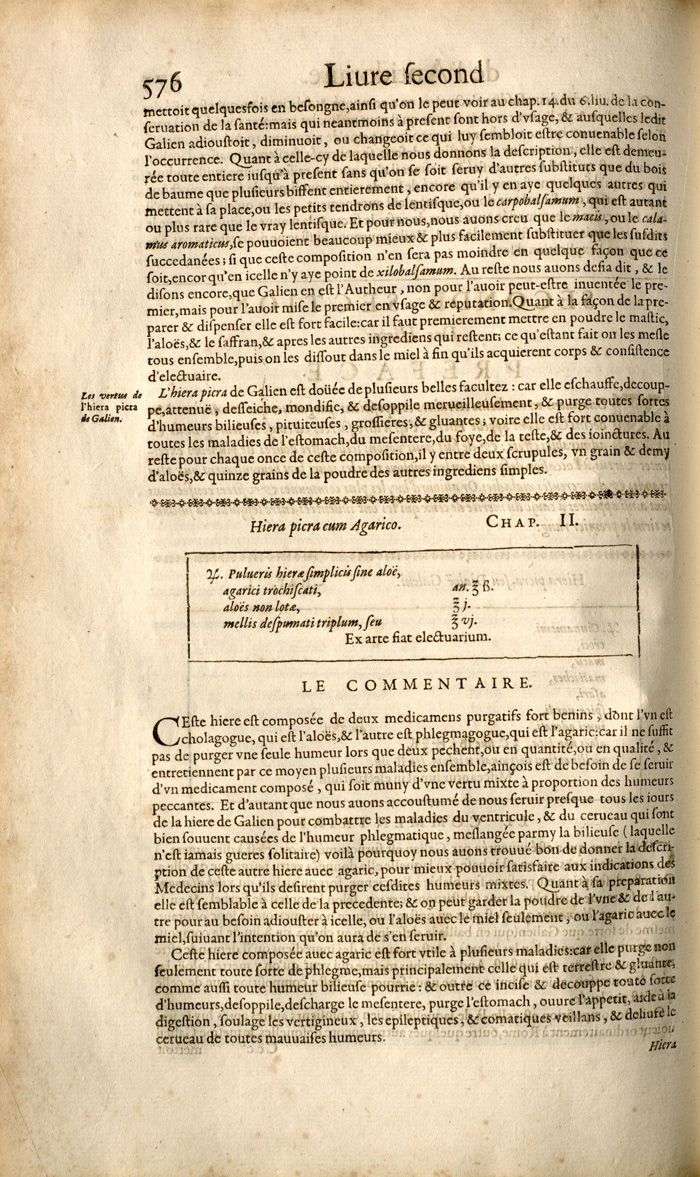 576 Liure ſecond
mettoit quelquesfois en beſongne,ainſi qu'on le peut voir au chap. 14. du 6. liu. de la con-
ſeruation de la ſanté:mais qui neantmoins à preſent ſont hors d'vſage, & auſquelles ledit
Galien adiouſtoit, diminuoit, ou changeoit ce qui luy ſembloit eſtre conuenable ſelon
l'occurrence. Quant à celle-cy de laquelle nous donnons la deſcription, elle eſt demeu-
rée toute entiere iuſqu'à preſent ſans qu'on ſe ſoit ſeruy d'autres ſubſtituts que du bois
de baume que pluſieurs biffent entierement, encore qu'il y en aye quelques autres qui
mettent à ſa place,ou les petits tendrons de lentiſque,ou le carpobalſamum, qui eſt autant
ou plus rare que le vray lentiſque. Et pour nous,nous auons creu que le macis, ou le cala-
mus aromaticus,ſe pouuoient beaucoup mieux & plus facilement ſubſtituer que les ſuſdits
succedanées; ſi que ceſte compoſition n'en ſera pas moindre en quelque façon que ce
ſoit,encor qu'en icelle n'y aye point de xilobalſamum. Au reſte nous auons deſia dit, & le
diſons encore,que Galien en eſt l'Autheur, non pour l'auoir peut-eſtre inuentée le pre-
mier,mais pour l'auoir miſe le premier en vſage & reputation.Quant à la façon de la pre-
parer & diſpenſer elle eſt fort facile:car il faut premierement mettre en poudre le maſtic,
l'aloës,& le ſaffran,& apres les autres ingrediens qui reſtent; ce qu'eſtant fait on les meſle
tous enſemble,puis on les diſſout dans le miel à fin qu'ils acquierent corps & conſiſtence
d'electuaire.
Les vertus de
l'hiera picra
de Galien.
L'hiera picra de Galien eſt doüée de pluſieurs belles facultez : car elle eſchauffe,decoup-
pe,attenuë, deſſeiche, mondifie, & deſoppile merueilleuſement, & purge toutes ſortes
d'humeurs bilieuſes, pituiteuſes, groſſieres,& gluantes; voire elle eſt fort conuenable à
toutes les maladies de l'eſtomach,du meſentere,du foye,de la teſte,& des ioinctures. Au
reſte pour chaque once de ceſte compoſition,il y entre deux ſcrupules, vn grain & demy
d'aloës,& quinze grains de la poudre des autres ingrediens ſimples.
Hiera picra cum Agarico. CHAP. II.
℞. Pulueris hieræ ſimplicis ſine aloë,
agarici trochiſcati, an. ℥ ß.
aloës non lotæ, ℥ j.
mellis deſpumati triplum, ſeu ℥ vj.
Ex arte fiat electuarium.
LE COMMENTAIRE.
CEſte hiere eſt compoſée de deux medicamens purgatifs fort benins, dont l'vn eſt
cholagogue, qui eſt l'aloës,& l'autre eſt phlegmagogue,qui eſt l'agaric:car il ne ſuffit
pas de purger vne ſeule humeur lors que deux pechent,ou en quantité,ou en qualité, &
entretiennent par ce moyen pluſieurs maladies enſemble,ainçois eſt de beſoin de ſe ſeruir
d'vn medicament compoſé, qui ſoit muny d'vne vertu mixte à proportion des humeurs
peccantes. Et d'autant que nous auons accouſtumé de nous ſeruir preſque tous les iours
de la hiere de Galien pour combattre les maladies du ventricule, & du cerueau qui ſont
bien ſouuent cauſées de l'humeur phlegmatique, meſlangée parmy la bilieuſe (laquelle
n'eſt iamais gueres ſolitaire) voilà pourquoy nous auons trouué bon de donner la deſcri-
ption de ceſte autre hiere auec agaric,pour mieux pouuoir ſatisfaire aux indications des
Medecins lors qu'ils deſirent purger ceſdites humeurs mixtes. Quant à ſa preparation
elle eſt ſemblable à celle de la precedente; & on peut garder la poudre de l'vne & de l'au-
tre pour au beſoin adiouſter à icelle, ou l'aloës auec le miel ſeulement, ou l'agaric auec le
miel,ſuiuant l'intention qu'on aura de s'en ſeruir.
Ceſte hiere compoſée auec agaric eſt fort vtile à pluſieurs maladies:car elle purge non
ſeulement toute ſorte de phlegme,mais principalement celle qui eſt terreſtre & gluante,
comme auſſi toute humeur bilieuſe pourrie: & outre ce inciſe & découppe toute ſorte
d'humeurs,deſoppile,deſcharge le meſentere, purge l'eſtomach, ouure l'appetit, aide à la
digeſtion, ſoulage les vertigineux, les epileptiques, & comatiques veillans, & deliure le
cerueau de toutes mauuaiſes humeurs.
Hiera